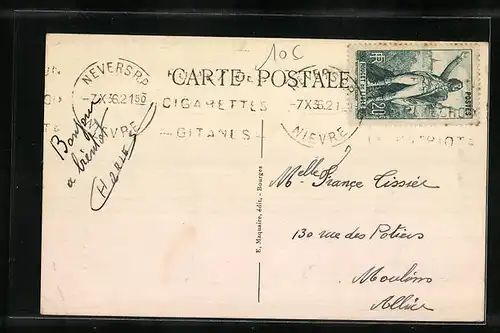 10c
CARTE POSTALE
NEVERS R.P.
-7.X 36.21 50
NIEVRE
CIGARETTES
-GITANES-
-7.X 36.21
NIEVRE
RF
POSTES
Bonjour
a bientôt
E. Maquaire, édit. - Bourges
Melle France Tissier
130 rue des Potiers
Moulins
Allier